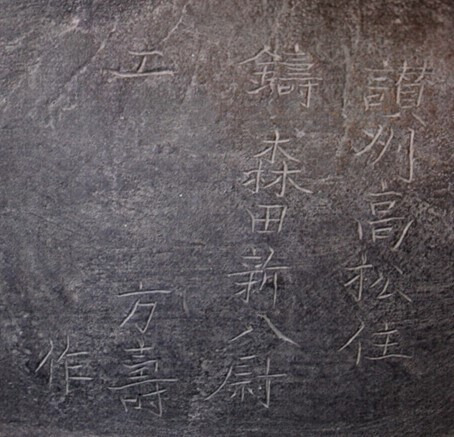 讃州高松住
鑄森田新八尉
工 方壽
作